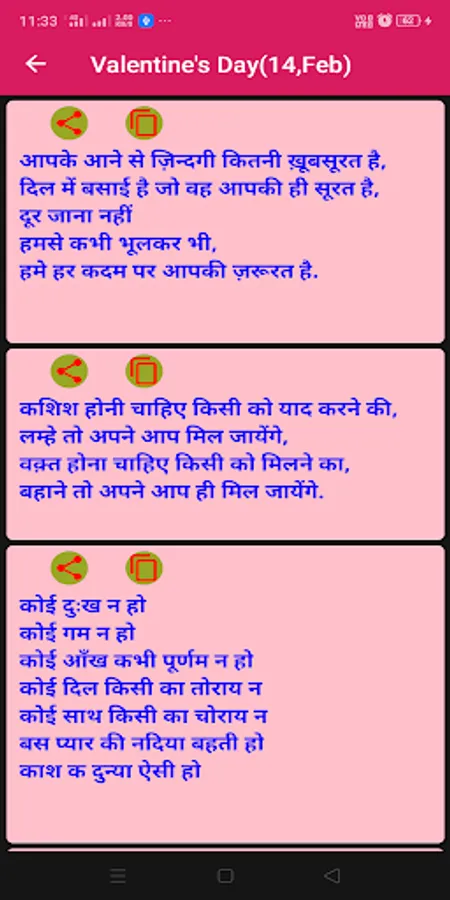 11:33
Valentine's Day(14,Feb)
आपके आने से ज़िन्दगी कितनी ख़ूबसूरत है,
दिल में बसाई है जो वह आपकी ही सूरत है,
दूर जाना नहीं
हमसे कभी भूलकर भी,
हमे हर कदम पर आपकी ज़रूरत है.
कशिश होनी चाहिए किसी को याद करने की,
लम्हे तो अपने आप मिल जायेंगे,
वक़्त होना चाहिए किसी को मिलने का,
बहाने तो अपने आप ही मिल जायेंगे.
कोई दुःख न हो
कोई गम न हो
कोई आँख कभी पूर्णम न हो
कोई दिल किसी का तोराय न
कोई साथ किसी का चोराय न
बस प्यार की नदिया बहती हो
काश क दुन्या ऐसी हो